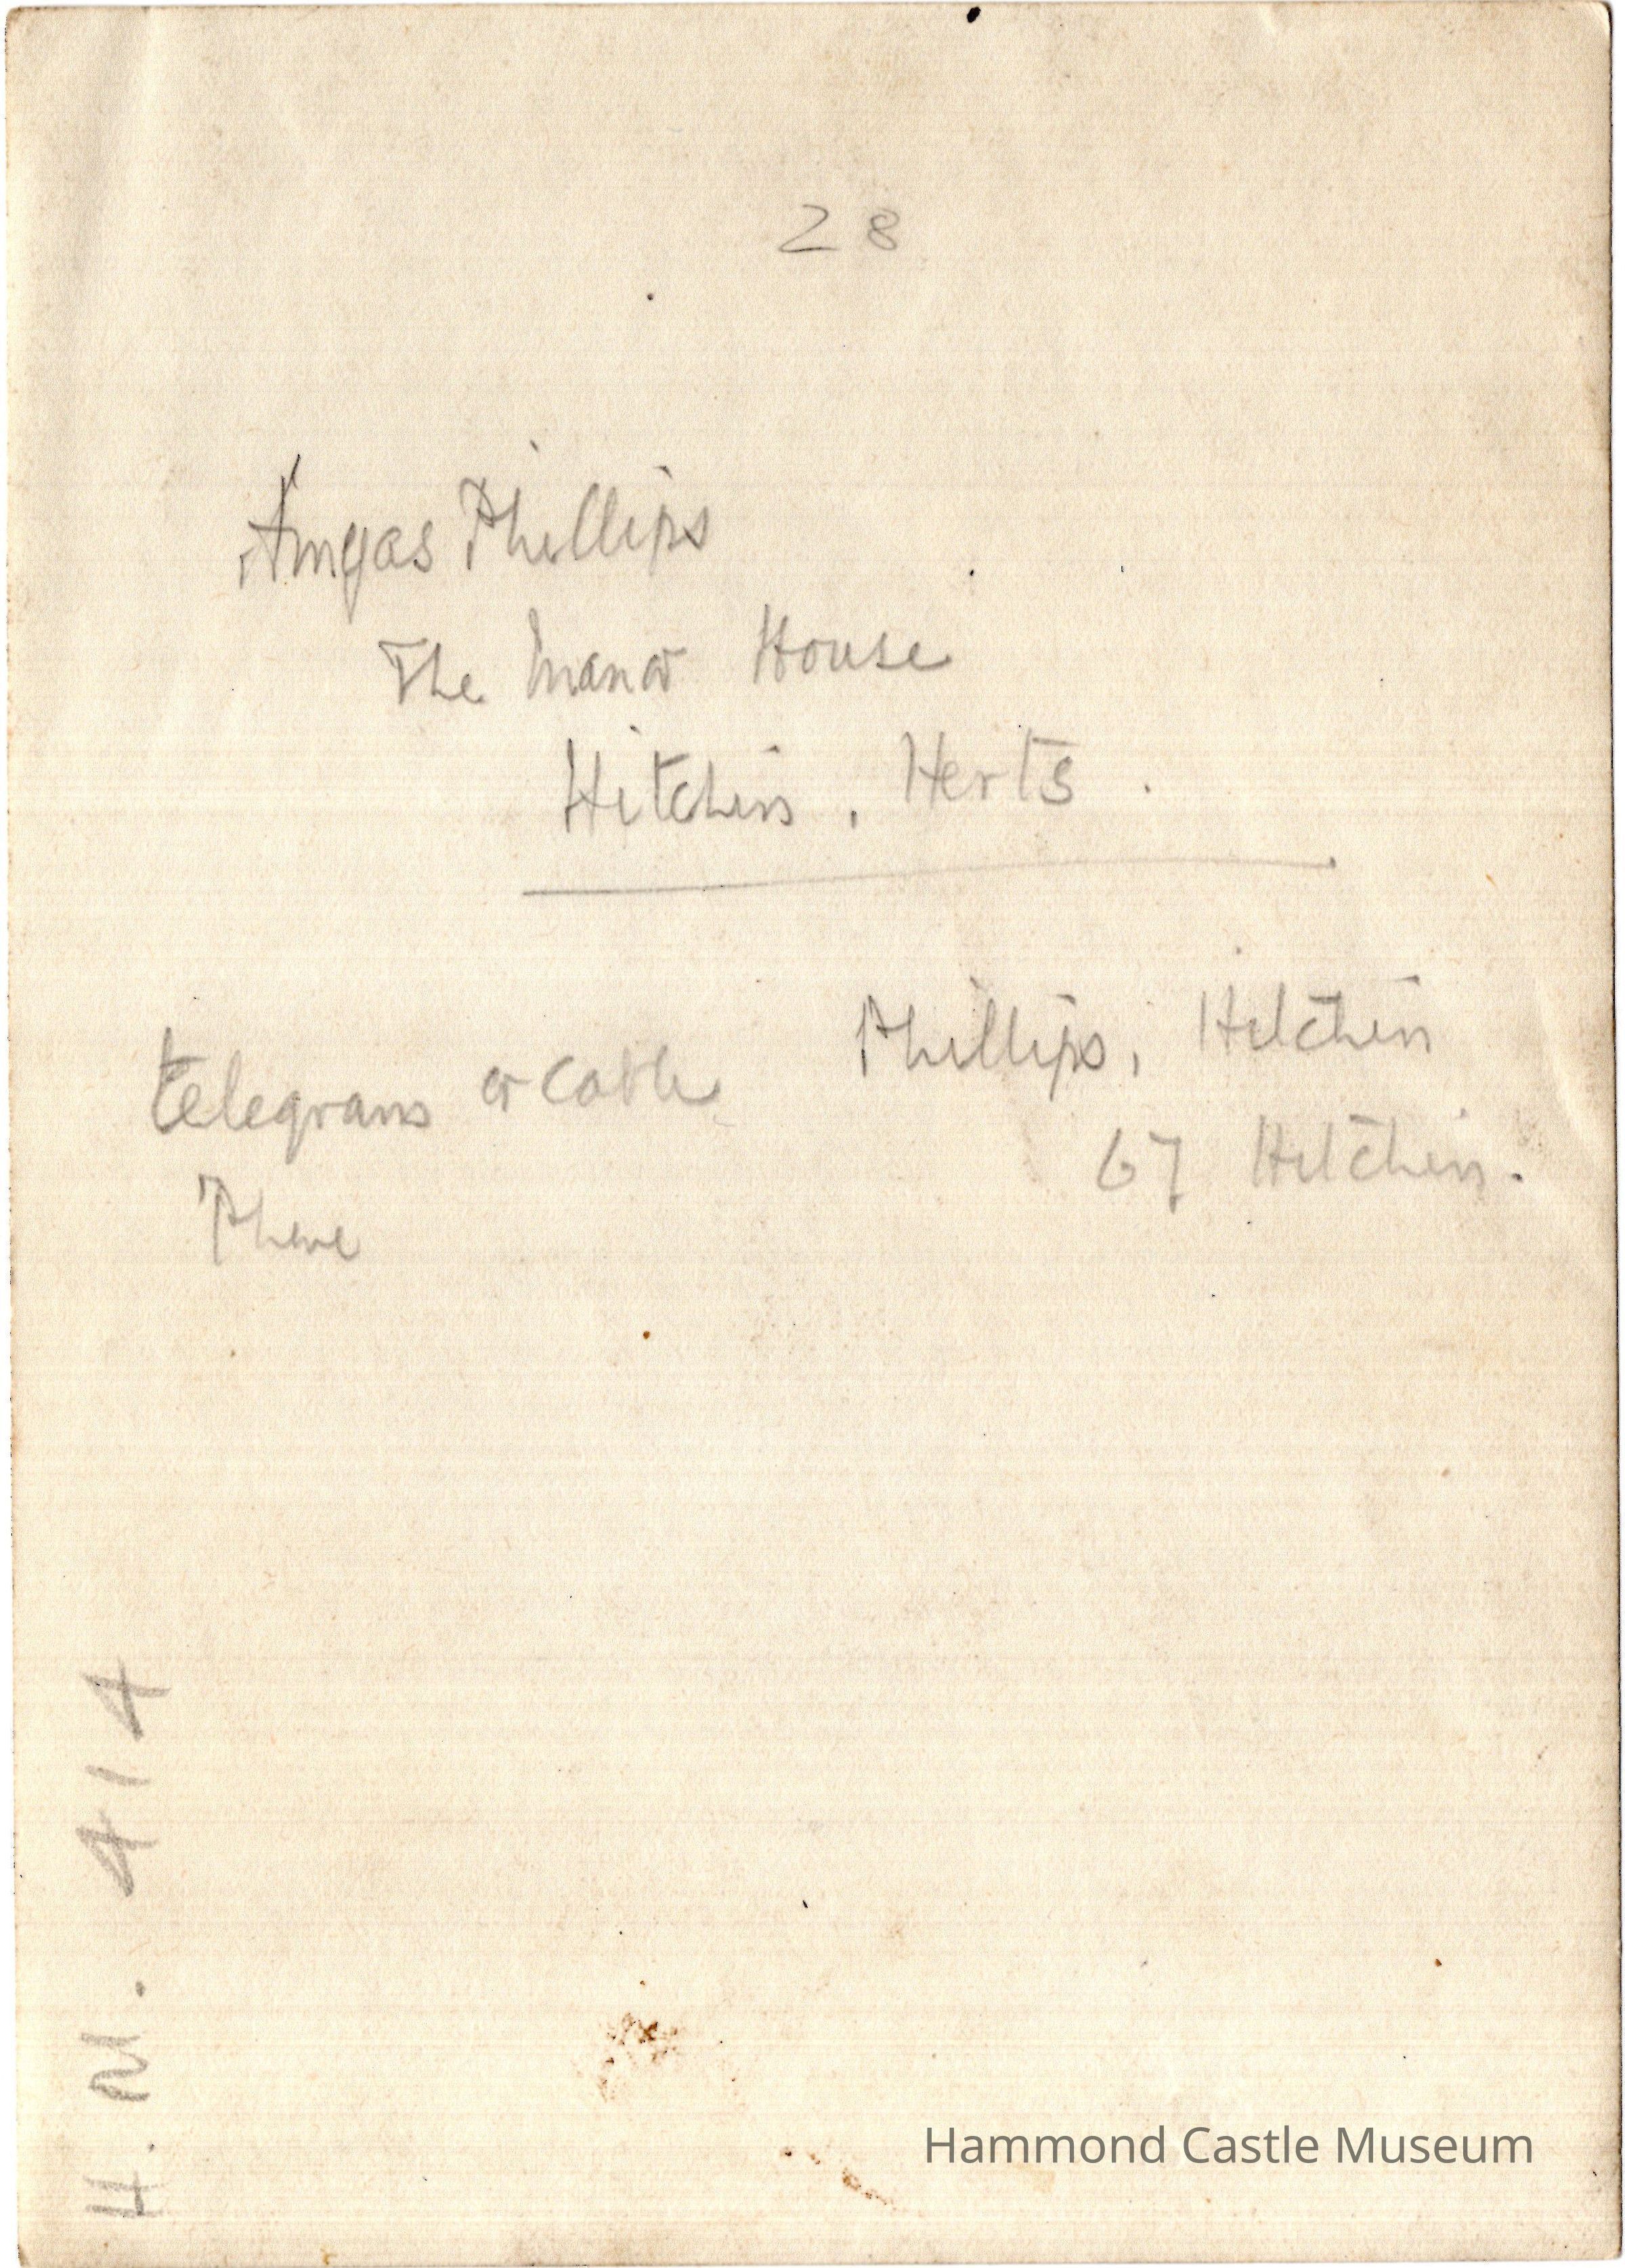 28
Amyas Phillips
The Manor House
Hitchin, Herts.
Telegrams or Cable Phillips, Hitchin
Phone 67 Hitchin.
H.M. 414
Hammond Castle Museum